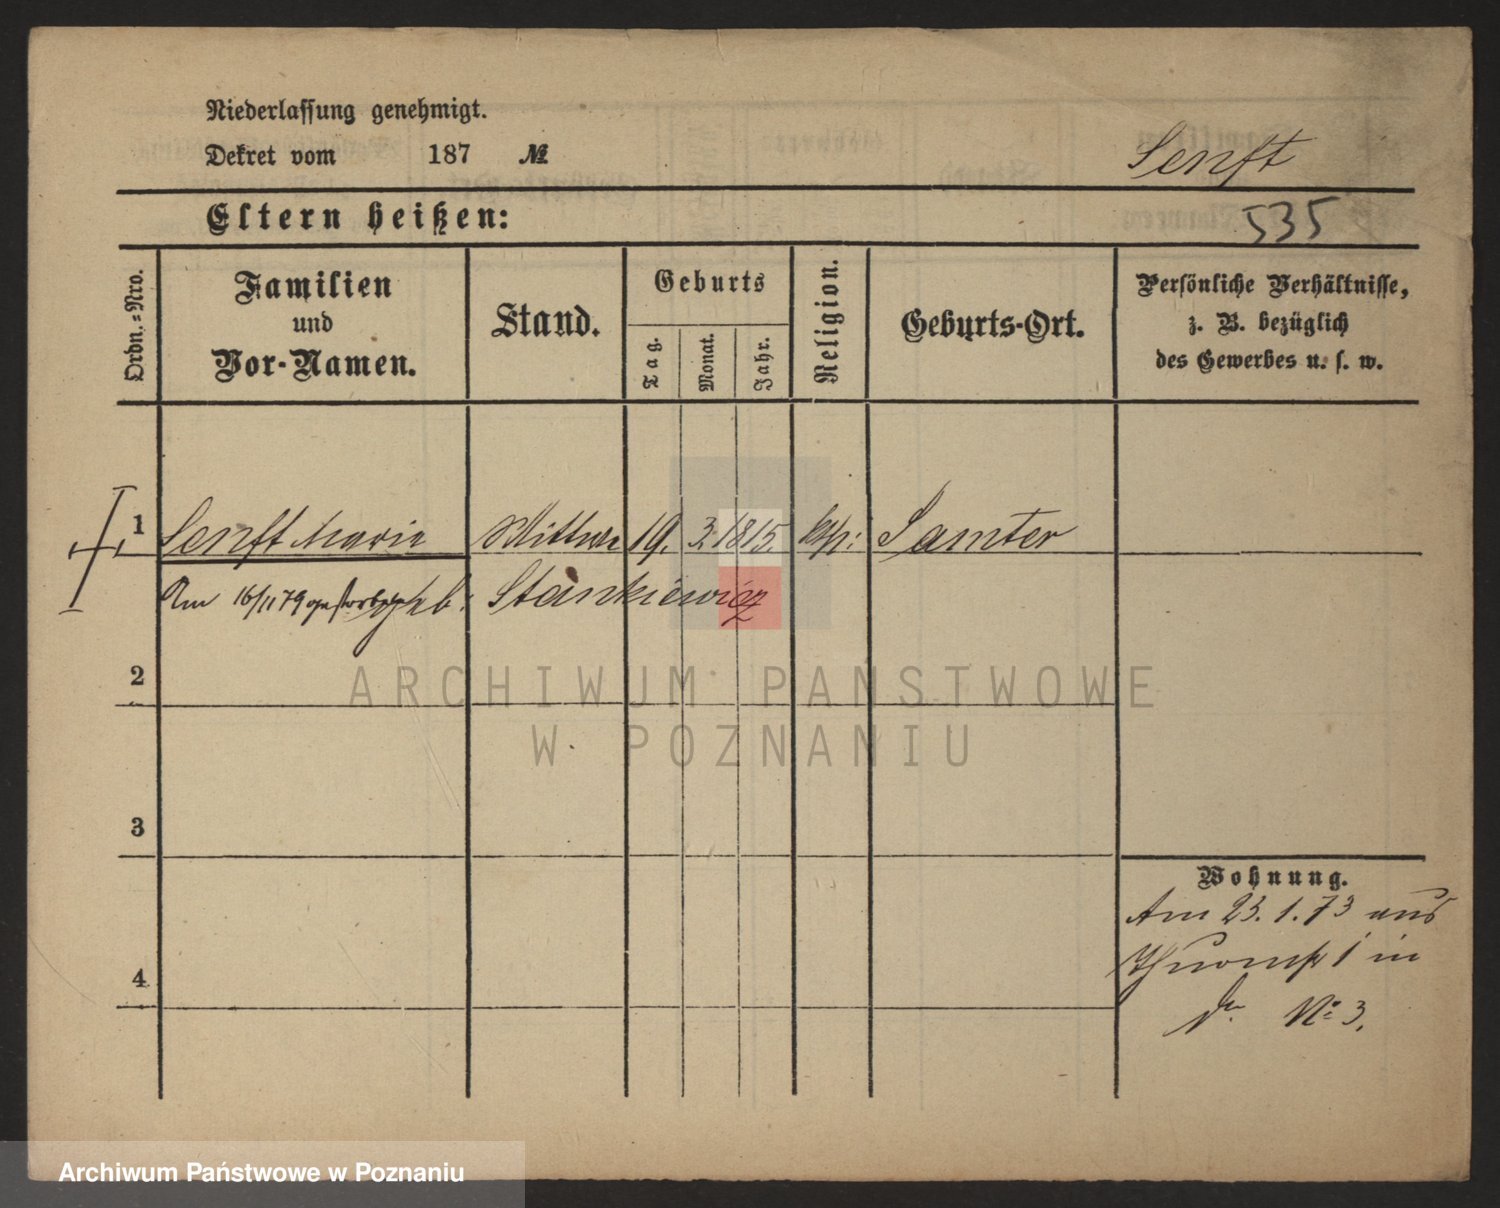 Niederlassung genehmigt.
Dekret vom 187 №
Senft
Eltern heißen:
535
Ordn.-Nro.
Familien
und
Vor-Namen.
Stand.
Geburts
Tag.
Monat.
Jahr.
Religion.
Geburts-Ort.
Persönliche Verhältnisse,
z. B. bezüglich
des Gewerbes u. s. w.
1 Senft Marie Wittwe 19. 3. 1815. Samter
Am 16/11 79 gestorben geb: Stankiewicz
2
ARCHIWUM PAŃSTWOWE
W POZNANIU
3
Wohnung.
Am 23. 1. 73 aus
1 in
No 3.
4
Archiwum Państwowe w Poznaniu